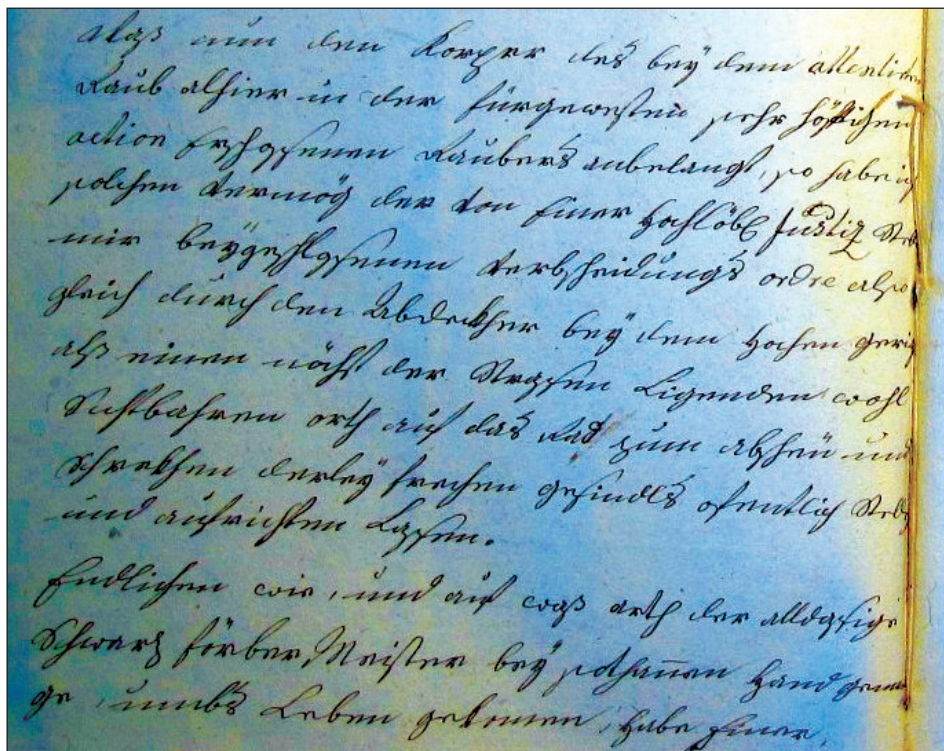 Waß nun den Korper des bey dem attentirten
Raub alhier in der fürgewesten sehr höfftigen
action Erschossenen Raubers anbelangt, so habe ich
solchen Vermög der von Einer Hochlöbl Justiz
mir beÿgeschlossenen Verbscheidungs ordre also
gleich durch den Abdeckher beÿ dem Hochen gericht
alß einen nöchst der Strassen Ligenden wohl
Sichtbahren orth auf das Rad zum abscheü und
Schrekhen derleÿ frechen gesindls ofentlich
und aufrichten Lassen.
Endlichen wie, und auf waß arth der alldasige
Schwarz färber Meister beÿ sothannen Hand gemen
ge, umbs Leben gekomen, habe Einer